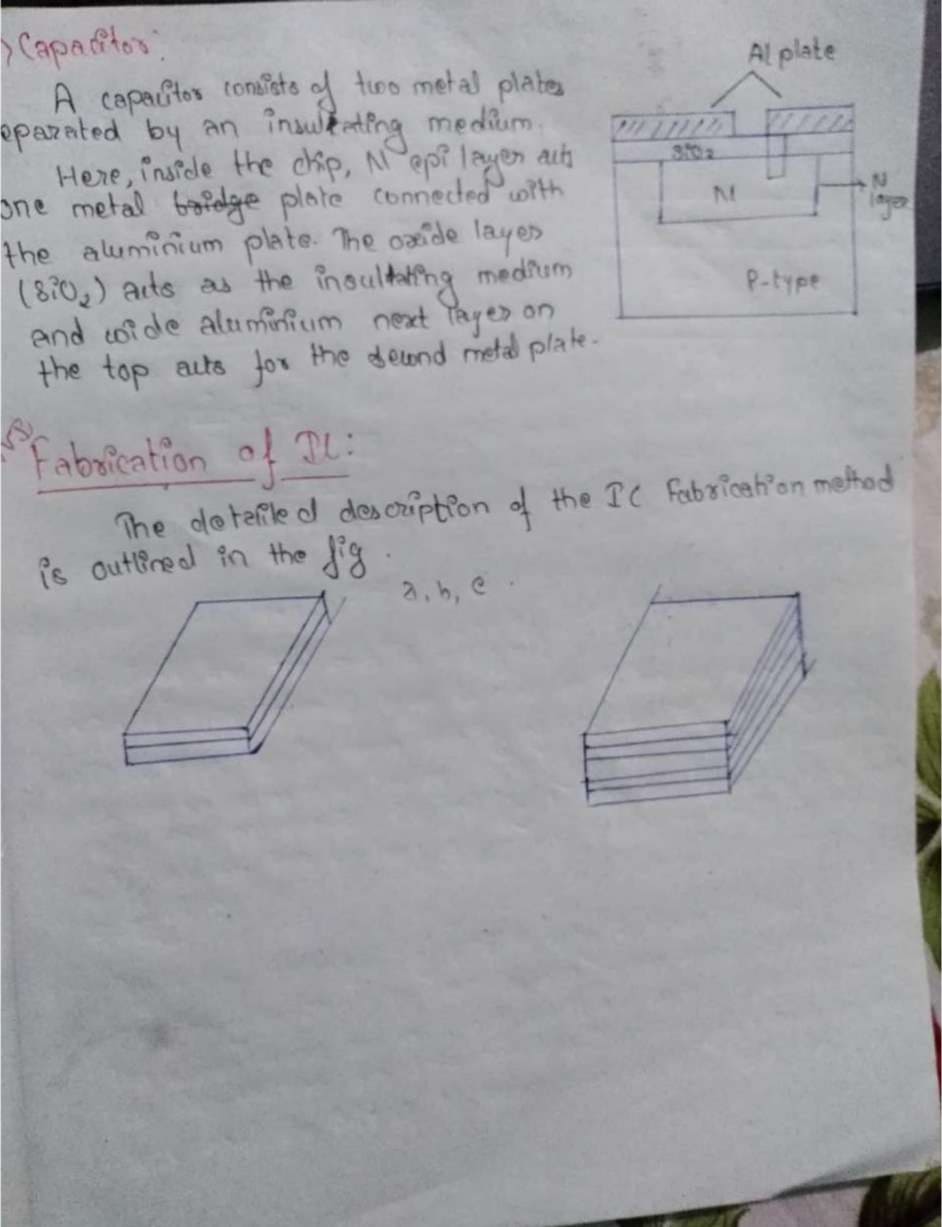 Capacitor:
A capacitor consists of two metal plates
eparated by an insulating medium.
Here, inside the chip, N epi layer acts
one metal bridge plate connected with
the aluminium plate. The oxide layer
(SiO2) acts as the insultating medium
and wide aluminium next layer on
the top acts for the second metal plate.
Al plate
SiO2
N
N
layer
P-type
Fabrication of IC:
The detailed description of the IC Fabrication method
is outlined in the fig.
a, b, c.